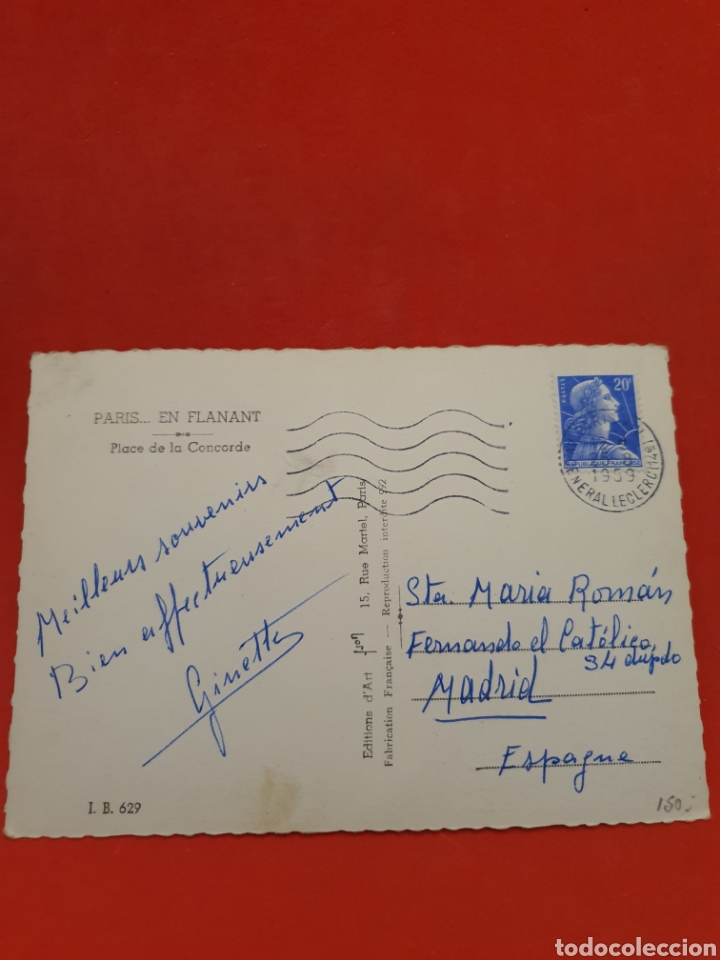 PARIS... EN FLANANT
Place de la Concorde
Meilleurs souvenirs
Bien affectueusement
Ginette
I. B. 629
Editions d'Art Yvon 15, Rue Martel, Paris
Fabrication Française — Reproduction interdite 992
POSTES
20F
REPUBLIQUE FRANÇAISE
1959
GENERAL LECLERC (14E)
Sta. Maria Román
Fernando el Católico,
34 dupdo
Madrid
Espagne
150
todocoleccion